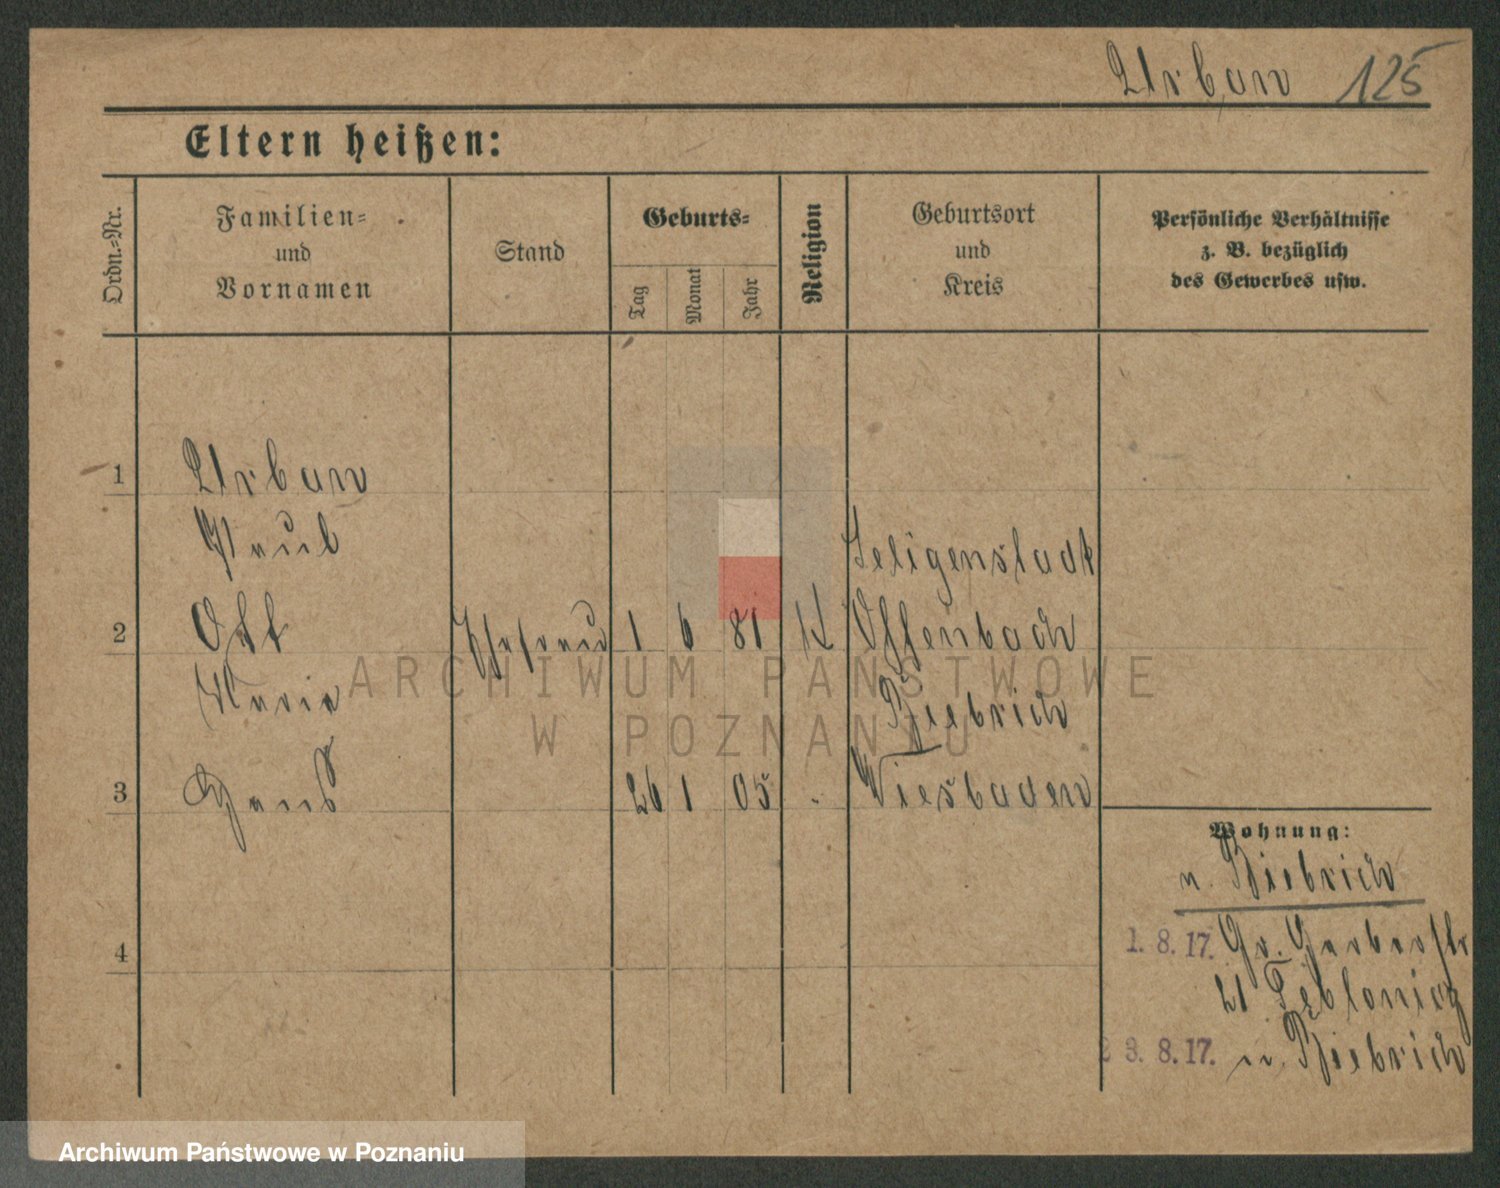 Urban 125
Eltern heißen:
Ordn.-Nr.
Familien-
und
Vornamen
Stand
Geburts-
Tag
Monat
Jahr
Religion
Geburtsort
und
Kreis
Persönliche Verhältnisse
z. B. bezüglich
des Gewerbes usw.
1 Urban
Paul
Seligenstadt
2 Ott Ehefrau 1 6 81 K Offenbach
Maria Biebrich
3 Hans 26 1 05 Wiesbaden
Wohnung:
n. Biebrich
1. 8. 17. Gr. Gerberstr
21
4
23. 8. 17. n. Biebrich
ARCHIWUM PAŃSTWOWE
W POZNANIU
Archiwum Państwowe w Poznaniu